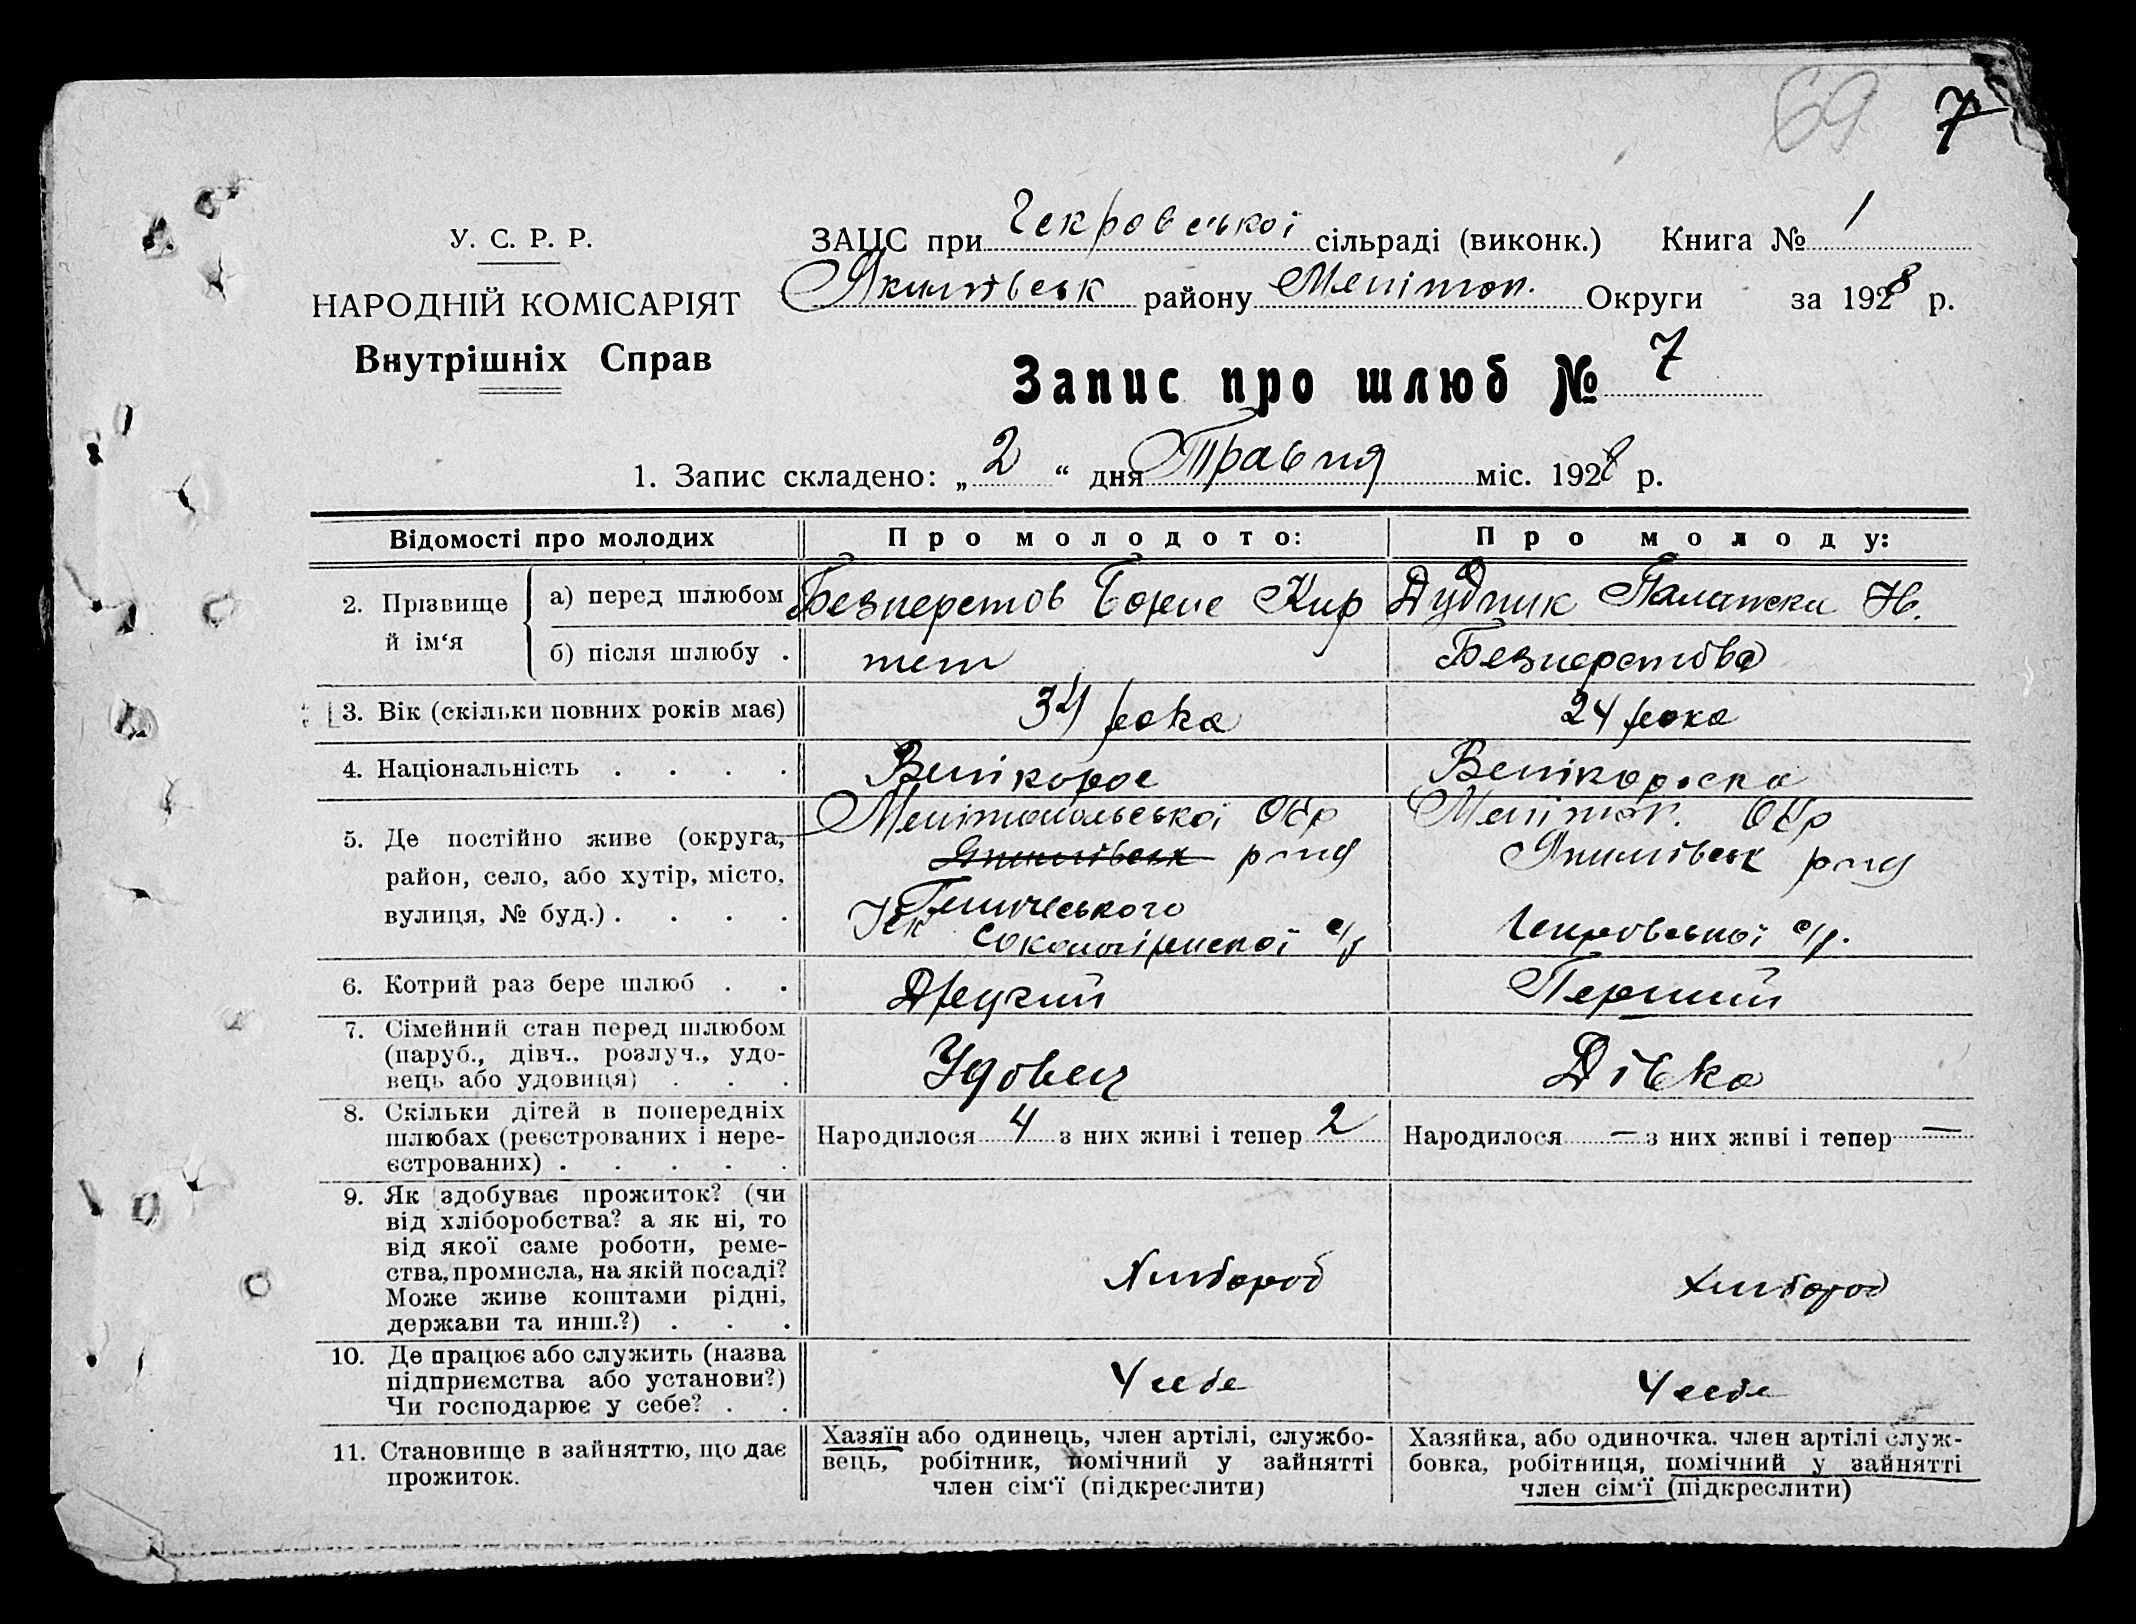 69 7
У. С. Р. Р.
НАРОДНІЙ КОМІСАРІЯТ
Внутрішніх Справ
ЗАЦС при Чекровської сільраді (виконк.) Книга № 1
Якимівськ району Мелітоп. Округи за 1928 р.
Запис про шлюб № 7
1. Запис складено: „ 2 “ дня Травня міс. 1928 р.
Відомості про молодих Про молодого: Про молоду:
2. Прізвище й ім‘я
а) перед шлюбом Безперстов Борис Кир Дудник Палажка Н.
б) після шлюбу . теж Безперстова
3. Вік (скільки повних років має) 34 рока 24 рока
4. Національність . . . . Велікорос Велікороска
5. Де постійно живе (округа, Мелітопольської Окр Меліто. Окр
район, село, або хутір, місто, Якимівськ р-ну Якимівськ р-ну
вулиця, № буд.) . . . . Генічеського
Сокологірнської с/р Чекровської с/р.
6. Котрий раз бере шлюб . . Другий Перший
7. Сімейний стан перед шлюбом
(паруб., дівч., розлуч., удо-
вець або удовиця) . . . Удовец Дівка
8. Скільки дітей в попередніх
шлюбах (реєстрованих і нере-
єстрованих) . . . . .
Народилося 4 з них живі і тепер 2 Народилося — з них живі і тепер —
9. Як здобуває прожиток? (чи
від хліборобства? а як ні, то
від якої саме роботи, реме-
ства, промисла, на якій посаді?
Може живе коштами рідні,
держави та инш.?) . . .
Хлібороб Хлібороб
10. Де працює або служить (назва
підприємства або установи?)
Чи господарює у себе? . .
У себе У себе
11. Становище в зайняттю, що дає
прожиток.
Хазяїн або одинець, член артілі, службо-
вець, робітник, помічний у зайнятті
член сім‘ї (підкреслити)
Хазяйка, або одиночка. член артілі служ-
бовка, робітниця, помічний у зайнятті
член сім‘ї (підкреслити)